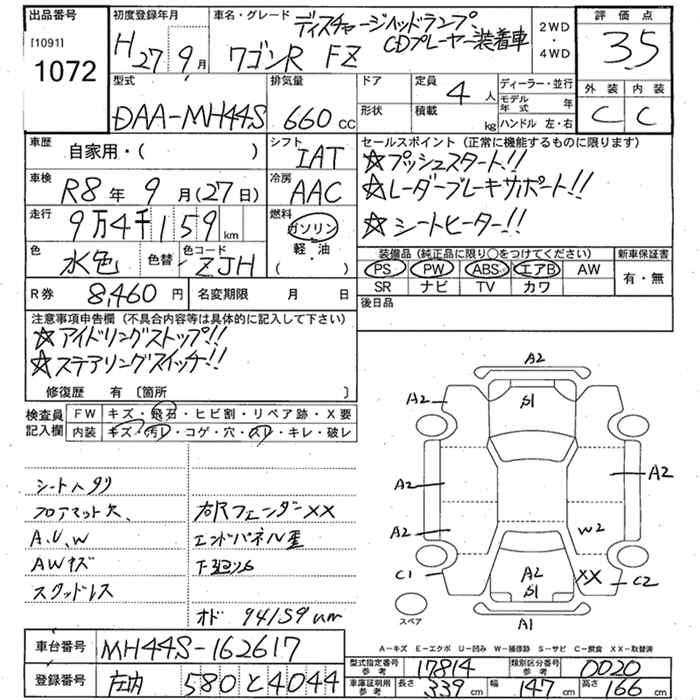 出品番号
[1091]
1072
初度登録年月
H27 9月
車名・グレード
ディスチャージヘッドランプ
CDプレーヤー装着車
ワゴンR FZ
2WD
・
4WD
評価点
3.5
外装 内装
C C
型式
DAA-MH44S
排気量
660cc
ドア
形状
定員
4人
積載
kg
ディーラー・並行
モデル年式 年
ハンドル 左・右
車歴
自家用・( )
シフト
IAT
セールスポイント (正常に機能するものに限ります)
☆プッシュスタート!!
☆レーダーブレーキサポート!!
☆シートヒーター!!
車検
R8年 9月(27日)
冷房
AAC
走行
9万4千159km
燃料
ガソリン
軽・油
( )
色
水色
色替
色コード
ZJH
装備品 (純正品に限り○をつけてください)
新車保証書
PS PW ABS エアB AW
SR ナビ TV カワ
有・無
R券
8,460円
名変期限 月 日
後日品
注意事項申告欄 (不具合内容等は具体的に記入して下さい)
☆アイドリングストップ!!
☆ステアリングスイッチ!!
修復歴 有〔箇所 〕
検査員記入欄
FW キズ・飛石・ヒビ割・リペア跡・X要
内装 キズ・汚レ・コゲ・穴・スレ・キレ・破レ
シートヘタリ
フロアマット欠、
A.U.W
AWキズ
スタッドレス
右Rフェンダー××
エンドパネル歪
下廻りサビ
オド 94159km
A2
S1
A2
A2
A2
A2
W2
C1
A2
S1
XX
C2
A1
スペア
A-キズ E-エクボ U-凹み W-補修跡 S-サビ C-腐食 XX-取替済
車台番号
MH44S-162617
登録番号
庄内 580 と 4044
型式指定番号 参考
17814
類別区分番号 参考
0020
車庫証明用 参考
長さ 339cm 幅 147cm 高さ 166cm